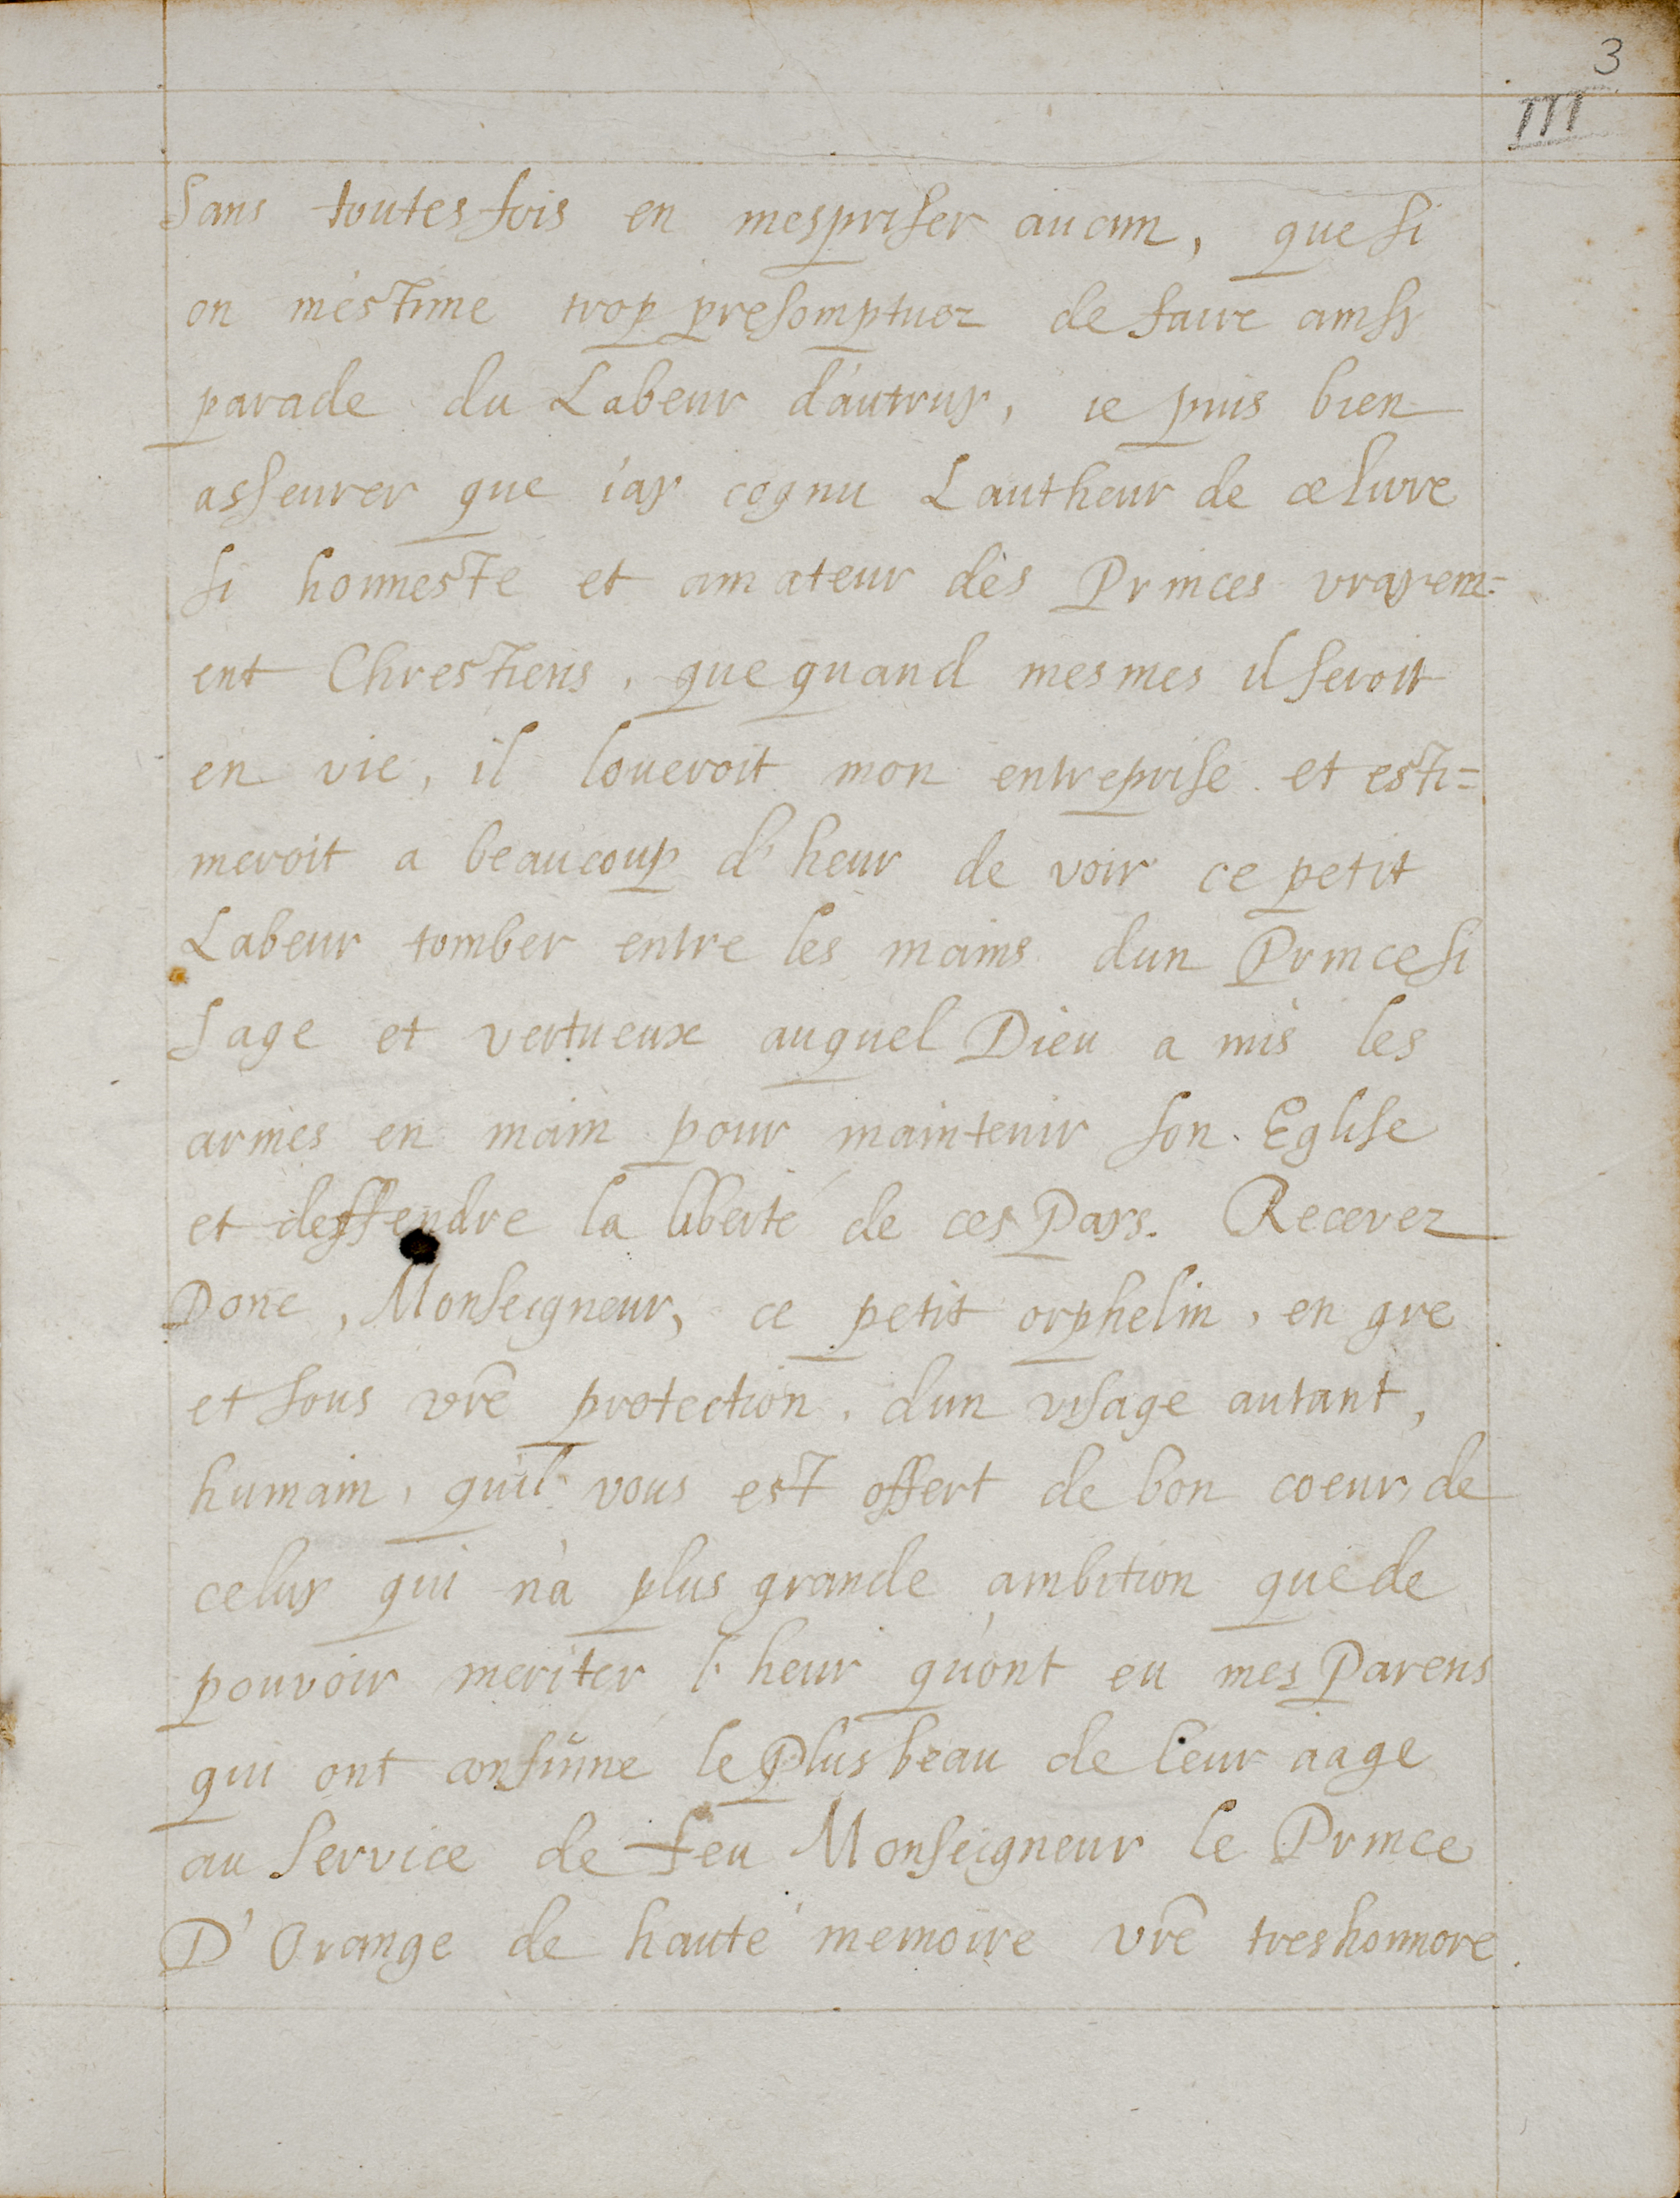 3
III
Sans toutesfois en mespriser aucun, que si
on m'estime trop presomptuoz de faire ainsy
parade du Labeur d'autruy, ie puis bien
asseurer que i'ay cognu Lautheur de ce livre
si honneste et amateur dès Princes vrayem=
ent Chrestiens, que quand mesmes il seroit
en vie, il loueroit mon entreprise et esti=
meroit a beaucoup d'heur de voir ce petit
Labeur tomber entre les mains dun Prince si
Sage et vertueux auquel Dieu a mis les
armes en main pour maintenir son Eglise
et deffendre la liberté de ces Pays. Recevez
Donc, Monseigneur, ce petit orphelin, en gre
et sous vrē protection, dun visage autant,
humain, qu'il vous est offert de bon coeur, de
celuy qui n'a plus grande ambition que de
pouvoir meriter l'heur qu'ont eu mes Parens
qui ont consūme le Plus beau de leur aage
au Service de feu Monseigneur le Prince
D'Orange de haute memoire vrē treshonnore